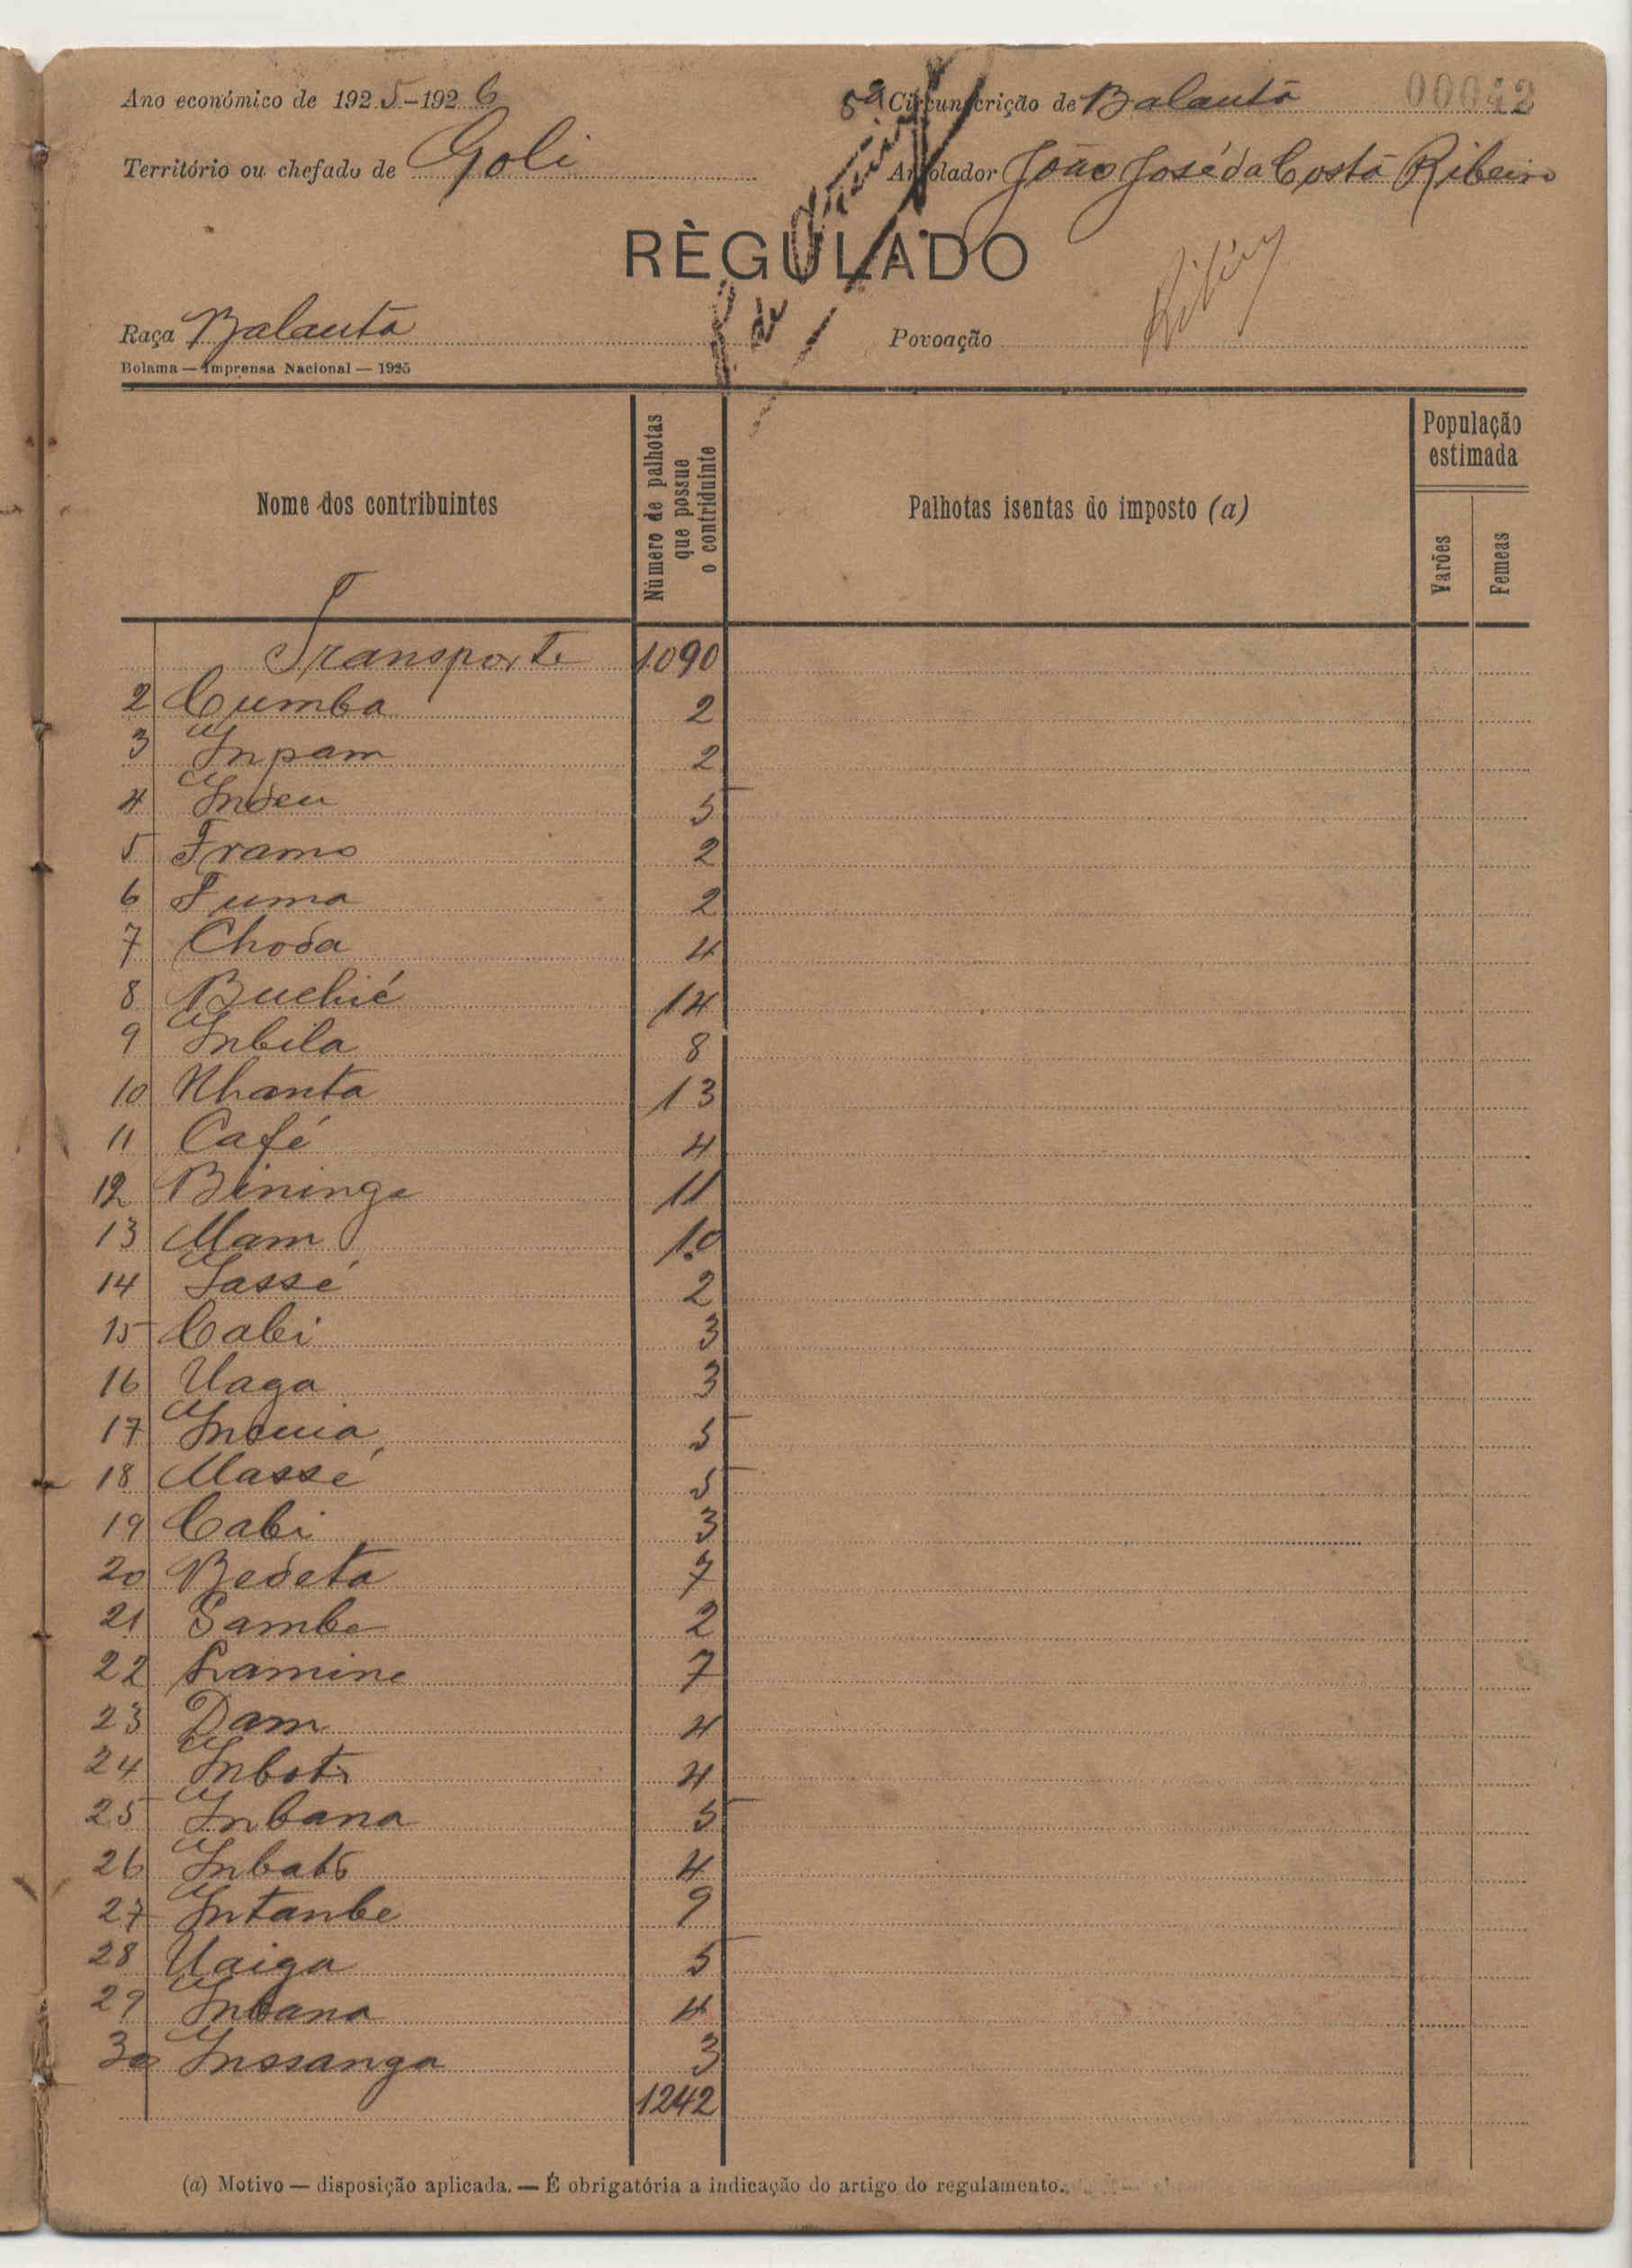 Ano económico de 1925-1926
5ª Circunscrição de Balanta 00042
Território ou chefado de Goli
Arrolador João José da Costa Ribeiro
RÈGULADO
Raça Balanta
Povoação
Bolama — Imprensa Nacional — 1925
Nome dos contribuintes
Número de palhotas que possue o contriduinte
Palhotas isentas do imposto (a)
População estimada
Varões
Femeas
Transporte 1.090
2 Cumba 2
3 Inpam 2
4 Indeu 5
5 Framo 2
6 Tuma 2
7 Choda 4
8 Buchié 14
9 Inbila 8
10 Nhanta 13
11 Café 4
12 Bininga 11
13 Mam 10
14 Sassé 2
15 Cabi 3
16 Uaga 3
17 5
18 Massé 5
19 Cabi 3
20 Bedeta 7
21 Sambe 2
22 Lamine 7
23 Dam 4
24 4
25 Inbana 5
26 4
27 Intanbe 9
28 Uaiga 5
29 4
30 Inssanga 3
1242
(a) Motivo — disposição aplicada. — É obrigatória a indicação do artigo do regulamento.